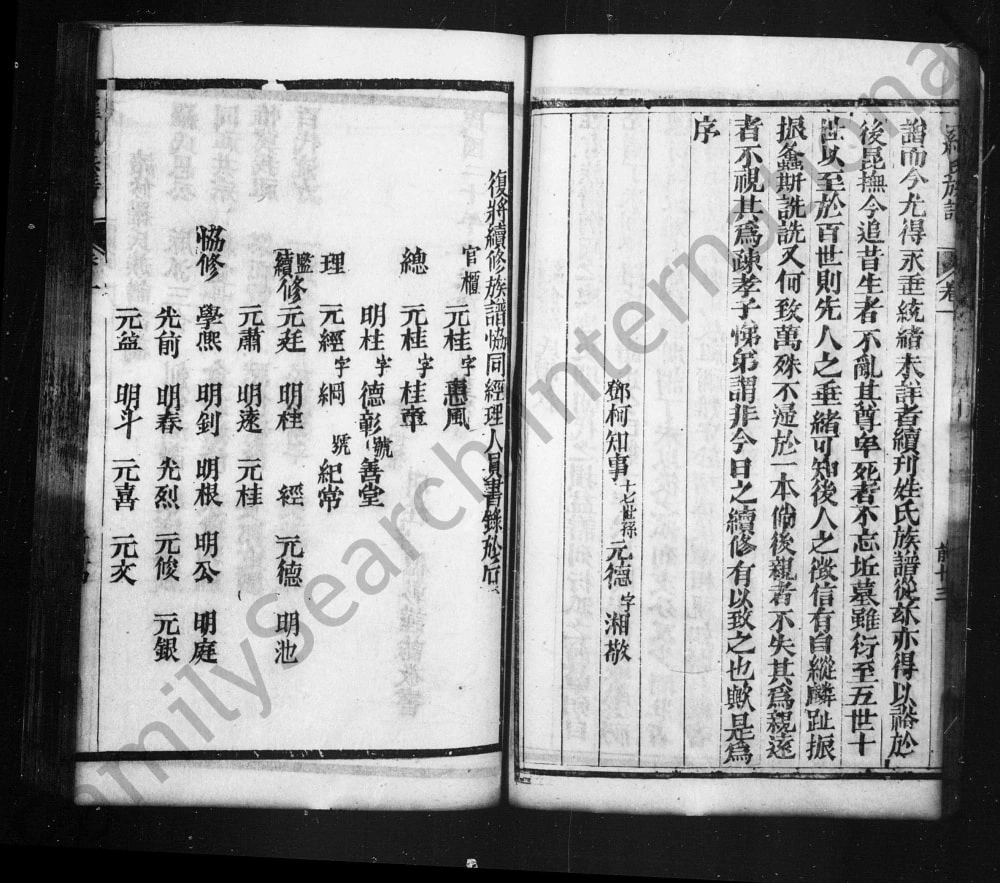 羅氏族譜
卷一
譜而今尤得永垂統緒未詳者續刊姓氏族譜從茲亦得以裕於
後昆撫今追昔生者不亂其尊卑死者不忘坵墓雖衍至五世十
世以至於百世則先人之垂緒可知後人之徵信有自縱麟趾振
振螽斯詵詵又何致萬殊不湜於一本倘後親者不失其爲親逺
者不視其爲疎孝子悌弟謂非今日之續修有以致之也歟是爲
序
鄧柯知事 十七世孫 元德 字 湘敬
復將續修族譜恊同經理人員書錄於后
官櫃 元桂 字 惠風
總 元桂 字 桂章
明柱 字 德彰 號 善堂
理 元經 字 綱 號 紀常
監續修 元廷 明桂 經 元德 明池
元肅 明遠 元桂
恊修 學熙 明釗 明根 明公 明庭
光前 明春 光烈 元俊 元銀
元益 明斗 元喜 元文
FamilySearch International